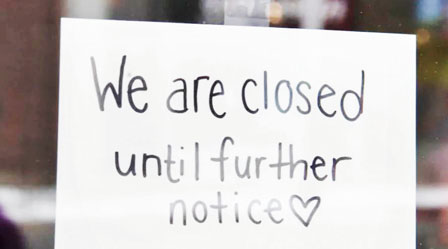 We are closed
until further
notice♡